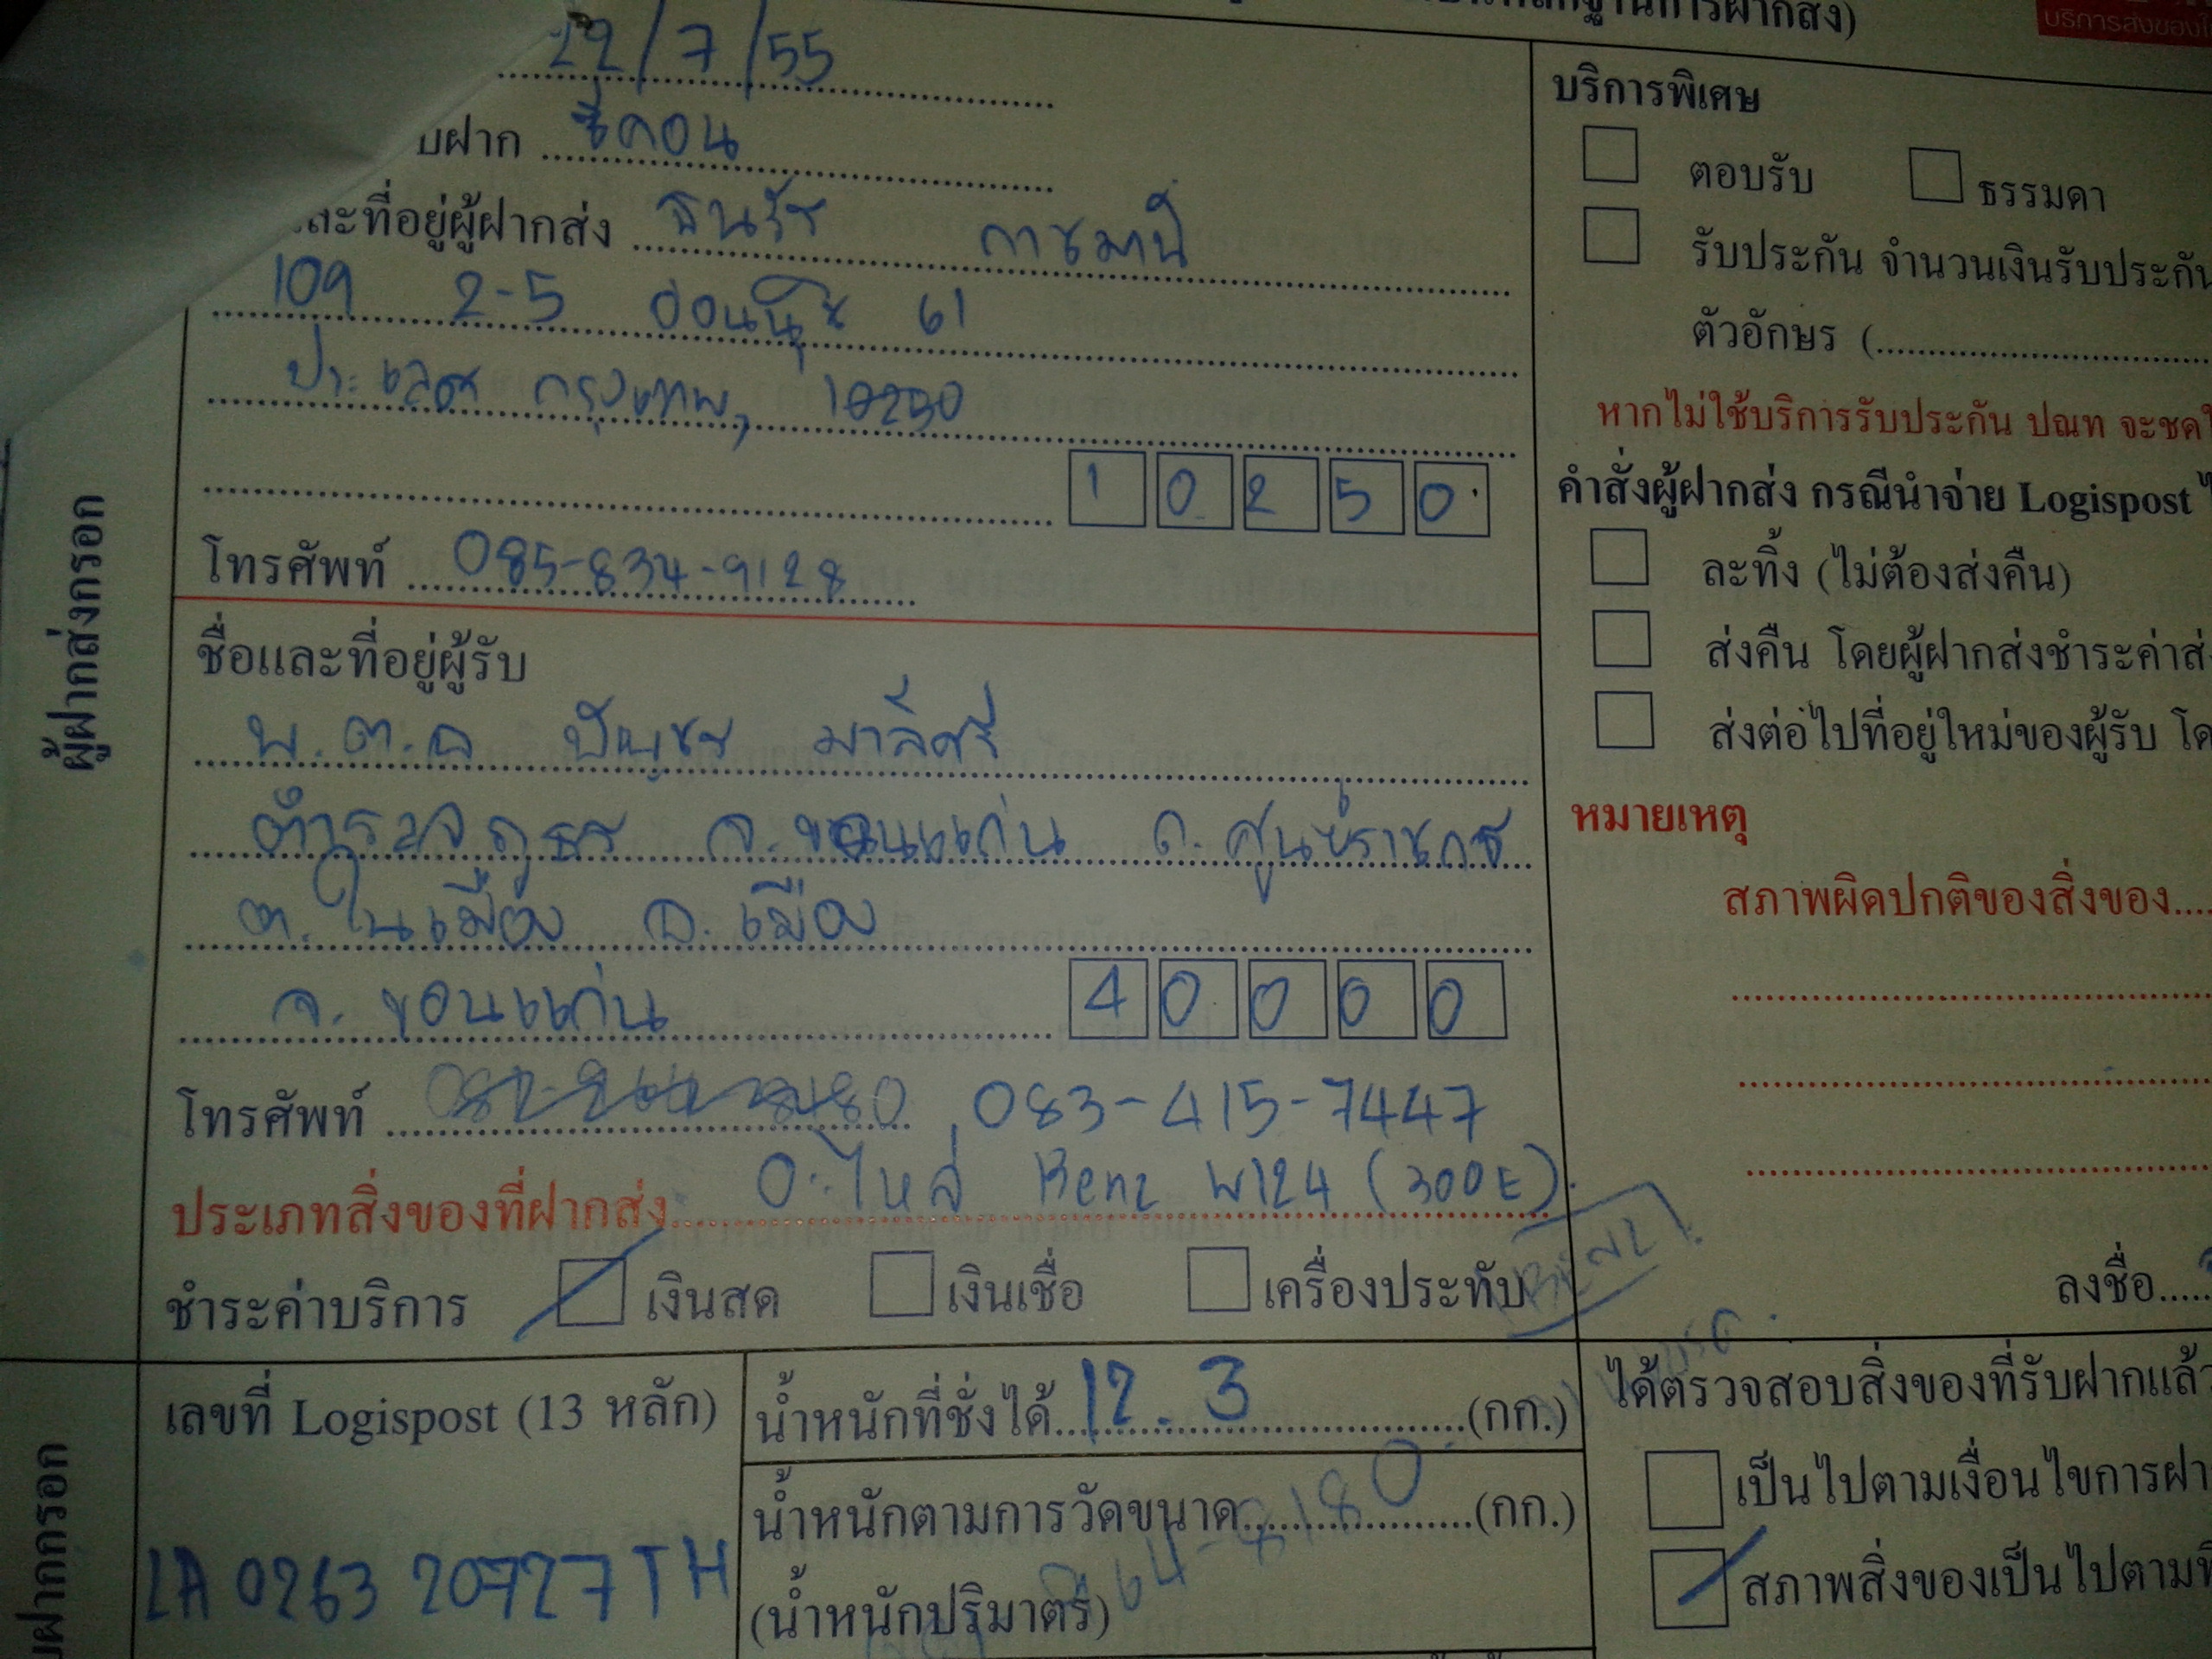 22/7/55
บฝาก ซีคอน
ละที่อยู่ผู้ฝากส่ง ธนรัช
109 2-5 อ่อนนุช 61
ประเวศ กรุงเทพฯ 10250
1 0 2 5 0
โทรศัพท์ 085-834-9128
ชื่อและที่อยู่ผู้รับ
พ.ต.ต มาลีศรี
ตำรวจภูธร จ.ขอนแก่น ถ.ศูนย์ราชการ
ต.ในเมือง อ.เมือง
จ. ขอนแก่น 4 0 0 0 0
โทรศัพท์ 083-415-7447
ประเภทสิ่งของที่ฝากส่ง อะไหล่ Benz W124 (300E)
ชำระค่าบริการ เงินสด เงินเชื่อ เครื่องประทับ
เลขที่ Logispost (13 หลัก)
LA 0263 20727 TH
น้ำหนักที่ชั่งได้ 12.3 (กก.)
น้ำหนักตามการวัดขนาด (กก.)
(น้ำหนักปริมาตร)
ผู้ฝากส่งกรอก
ฝากกรอก
ฐานการฝากส่ง)
บริการพิเศษ
ตอบรับ ธรรมดา
รับประกัน จำนวนเงินรับประกัน
ตัวอักษร (
หากไม่ใช้บริการรับประกัน ปณท จะชด
คำสั่งผู้ฝากส่ง กรณีนำจ่าย Logispost
ละทิ้ง (ไม่ต้องส่งคืน)
ส่งคืน โดยผู้ฝากส่งชำระค่าส่
ส่งต่อไปที่อยู่ใหม่ของผู้รับ โด
หมายเหตุ
สภาพผิดปกติของสิ่งของ
ลงชื่อ
ได้ตรวจสอบสิ่งของที่รับฝากแล้ว
เป็นไปตามเงื่อนไขการฝา
สภาพสิ่งของเป็นไปตามที่